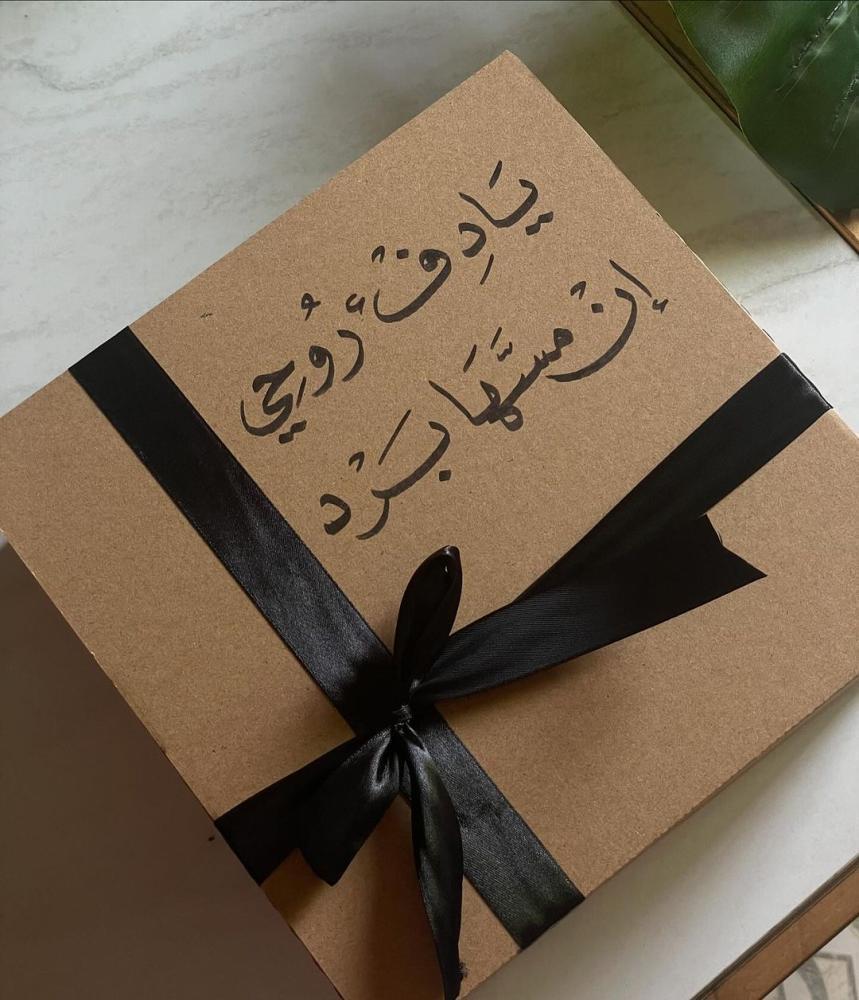 يَادِفْءَ رُوُحِي
إِنْ مسَّهَا بَرْد